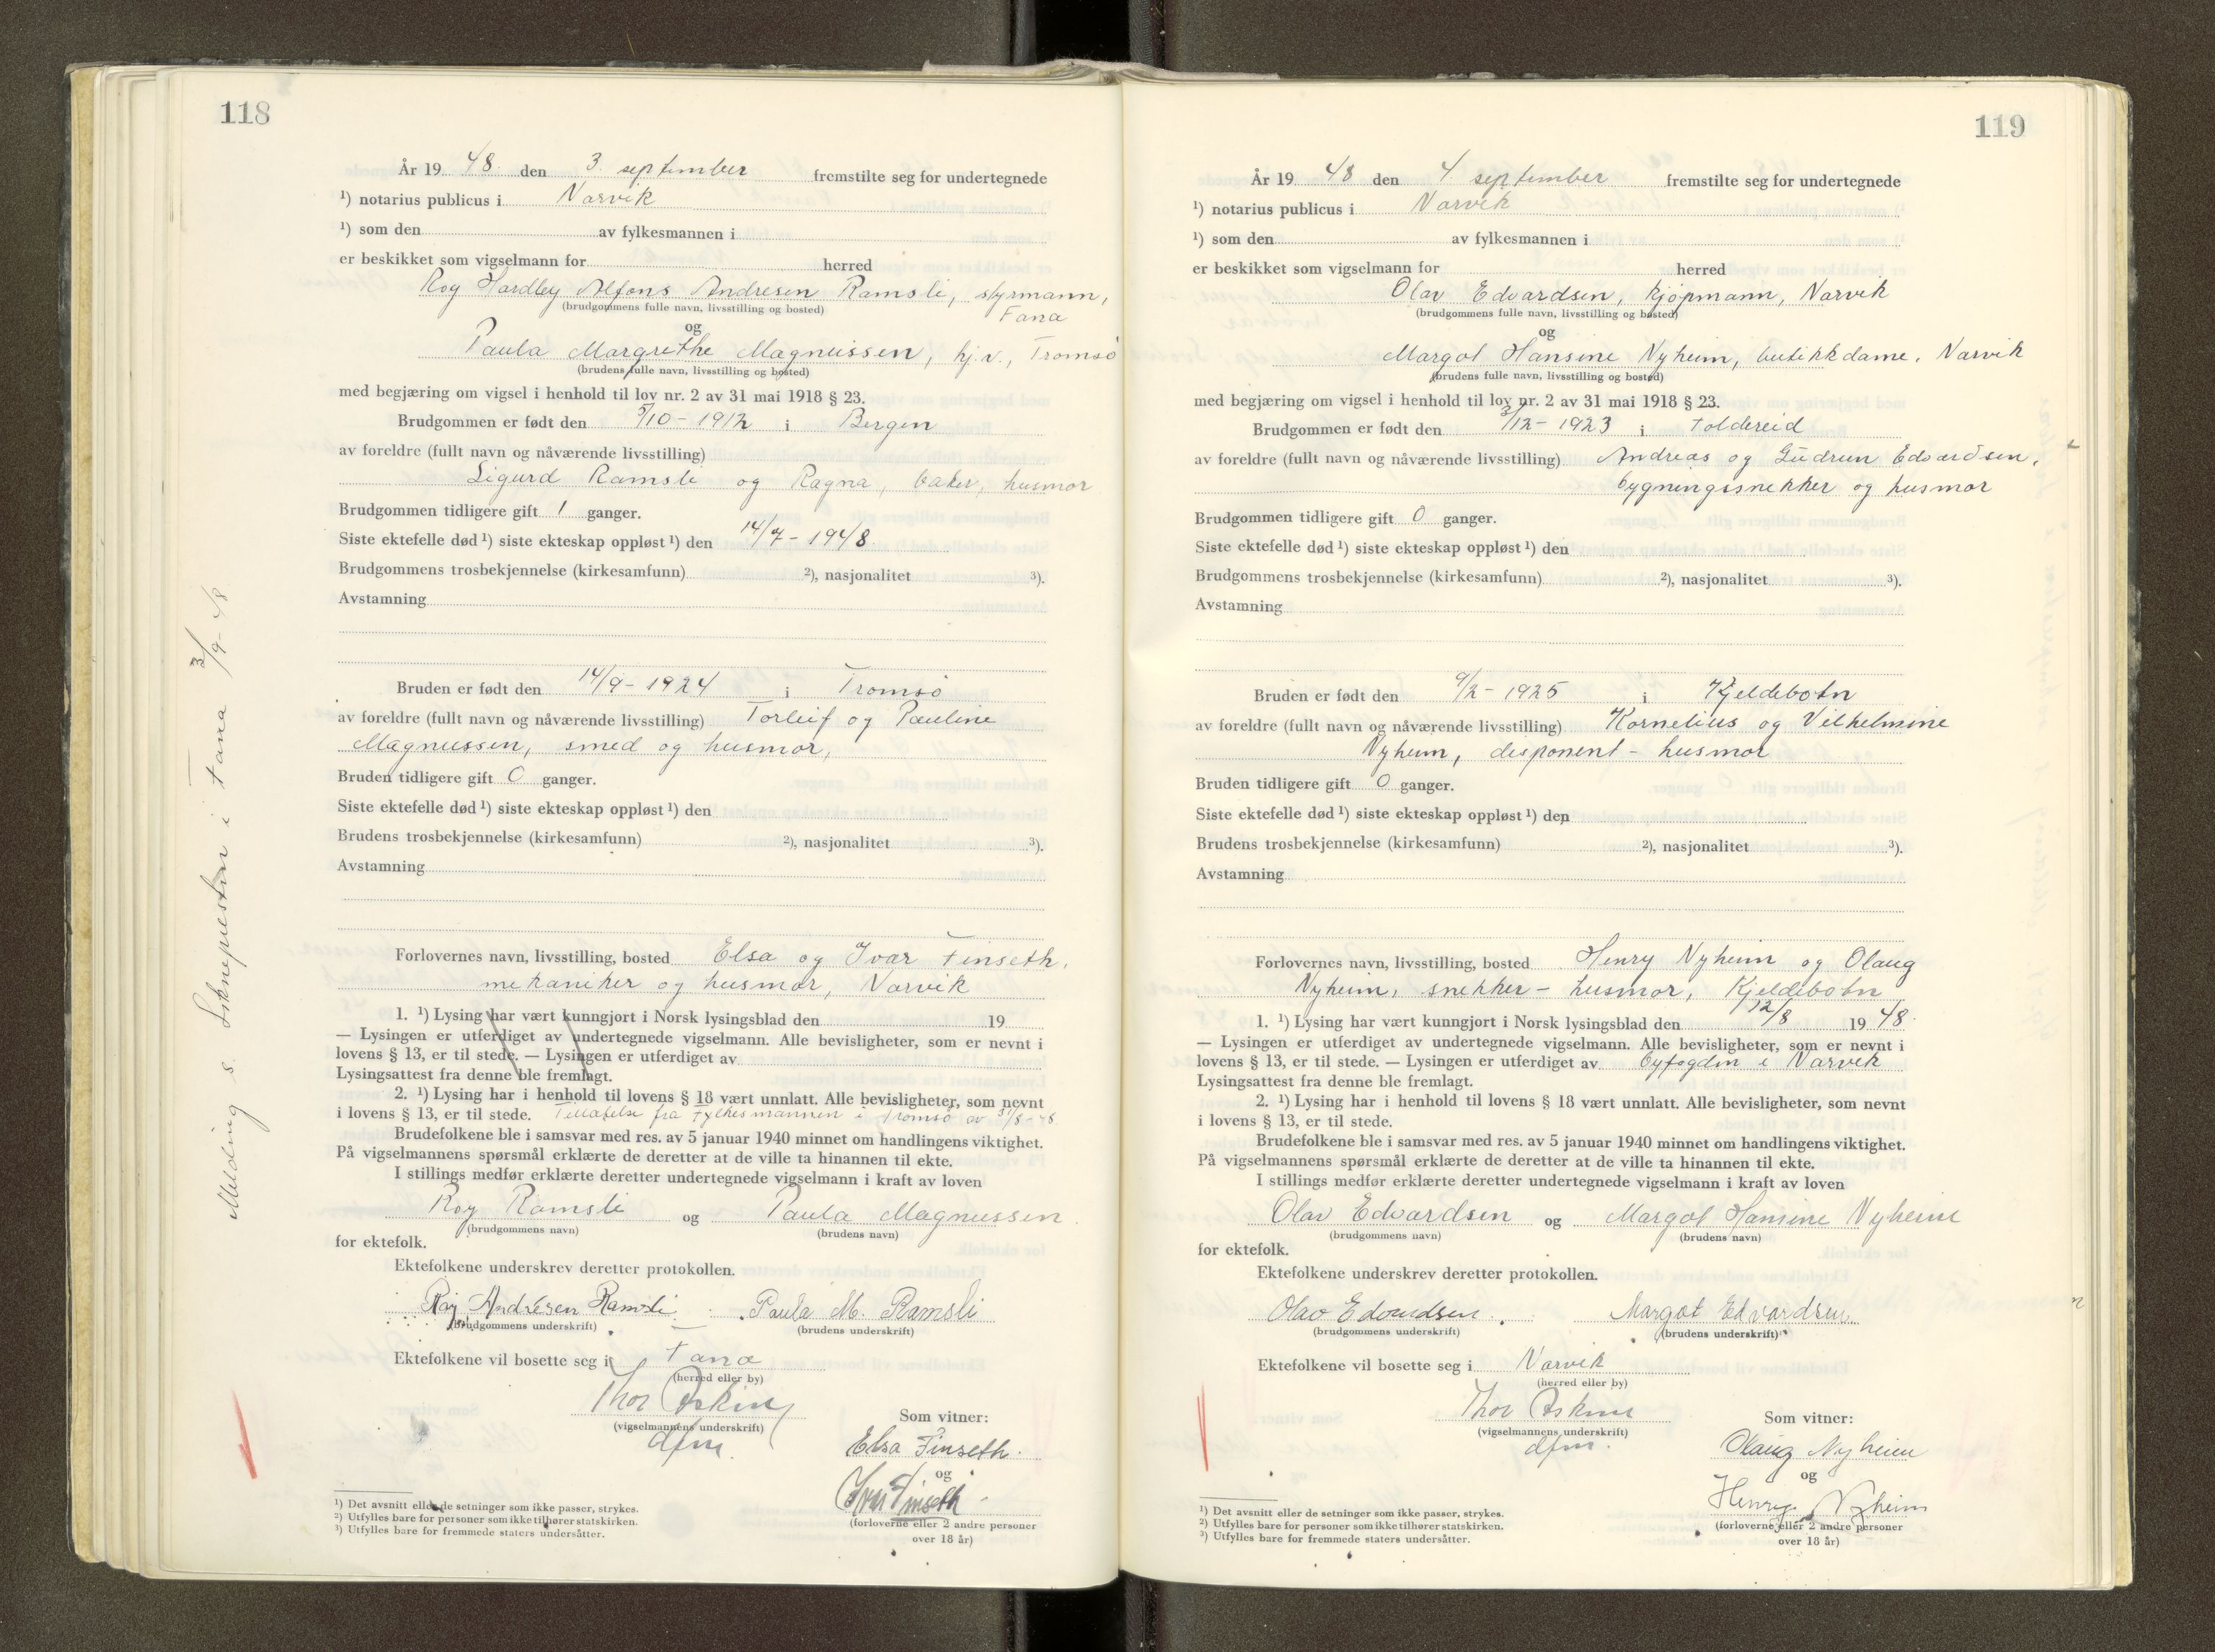 118
År 19 48 den 3. september fremstilte seg for undertegnede
¹) notarius publicus i Narvik
¹) som den av fylkesmannen i
er beskikket som vigselmann for herred
Roy Hardley Alfons Andresen Ramsli, styrmann,
(brudgommens fulle navn, livsstilling og bosted) Tana
og
Paula Margrethe Magnussen, hj.v., Tromsø
(brudens fulle navn, livsstilling og bosted)
med begjæring om vigsel i henhold til lov nr. 2 av 31 mai 1918 § 23.
Brudgommen er født den 5/10 - 1912 i Bergen
av foreldre (fullt navn og nåværende livsstilling)
Sigurd Ramsli og Ragna, baker, husmor
Brudgommen tidligere gift 1 ganger.
Siste ektefelle død ¹) siste ekteskap oppløst ¹) den 14/7 - 1948
Brudgommens trosbekjennelse (kirkesamfunn) ²), nasjonalitet ³).
Avstamning
Bruden er født den 14/9 - 1924 i Tromsø
av foreldre (fullt navn og nåværende livsstilling) Torleif og Pauline
Magnussen, smed og husmor,
Bruden tidligere gift 0 ganger.
Siste ektefelle død ¹) siste ekteskap oppløst ¹) den
Brudens trosbekjennelse (kirkesamfunn) ²), nasjonalitet ³).
Avstamning
Forlovernes navn, livsstilling, bosted Elsa og Ivar Finseth,
mekaniker og husmor, Narvik
1. ¹) Lysing har vært kunngjort i Norsk lysingsblad den 19
— Lysingen er utferdiget av undertegnede vigselmann. Alle bevisligheter, som er nevnt i
lovens § 13, er til stede. — Lysingen er utferdiget av
Lysingsattest fra denne ble fremlagt.
2. ¹) Lysing har i henhold til lovens § 18 vært unnlatt. Alle bevisligheter, som nevnt
i lovens § 13, er til stede. Tillatelse fra Fylkesmannen i Tromsø av 31/8-48.
Brudefolkene ble i samsvar med res. av 5 januar 1940 minnet om handlingens viktighet.
På vigselmannens spørsmål erklærte de deretter at de ville ta hinannen til ekte.
I stillings medfør erklærte deretter undertegnede vigselmann i kraft av loven
Roy Ramsli og Paula Magnussen
(brudgommens navn) (brudens navn)
for ektefolk.
Ektefolkene underskrev deretter protokollen.
Roy Andresen Ramsli Paula M. Ramsli
(brudgommens underskrift) (brudens underskrift)
Ektefolkene vil bosette seg i Tana
(herred eller by)
Thor Askim
(vigselmannens underskrift)
dfm.
Som vitner:
Elsa Finseth.
og
Ivar Finseth
(forloverne eller 2 andre personer
over 18 år)
¹) Det avsnitt eller de setninger som ikke passer, strykes.
²) Utfylles bare for personer som ikke tilhører statskirken.
³) Utfylles bare for fremmede staters undersåtter.
Melding s. Soknepresten i Tana 3/9-48
119
År 19 48 den 4. september fremstilte seg for undertegnede
¹) notarius publicus i Narvik
¹) som den av fylkesmannen i
er beskikket som vigselmann for herred
Olav Edvardsen, kjøpmann, Narvik
(brudgommens fulle navn, livsstilling og bosted)
og
Margot Hansine Nyheim, butikkdame, Narvik
(brudens fulle navn, livsstilling og bosted)
med begjæring om vigsel i henhold til lov nr. 2 av 31 mai 1918 § 23.
Brudgommen er født den 3/12 - 1923 i Foldereid
av foreldre (fullt navn og nåværende livsstilling) Andreas og Gudrun Edvardsen,
bygningssnekker og husmor
Brudgommen tidligere gift 0 ganger.
Siste ektefelle død ¹) siste ekteskap oppløst ¹) den
Brudgommens trosbekjennelse (kirkesamfunn) ²), nasjonalitet ³).
Avstamning
Bruden er født den 9/2 - 1925 i Kjeldebotn
av foreldre (fullt navn og nåværende livsstilling) Kornelius og Vilhelmine
Nyheim, disponent - husmor
Bruden tidligere gift 0 ganger.
Siste ektefelle død ¹) siste ekteskap oppløst ¹) den
Brudens trosbekjennelse (kirkesamfunn) ²), nasjonalitet ³).
Avstamning
Forlovernes navn, livsstilling, bosted Henry Nyheim og Olaug
Nyheim, snekker - husmor, Kjeldebotn
1. ¹) Lysing har vært kunngjort i Norsk lysingsblad den 12/8 19 48.
— Lysingen er utferdiget av undertegnede vigselmann. Alle bevisligheter, som er nevnt i
lovens § 13, er til stede. — Lysingen er utferdiget av byfogden i Narvik
Lysingsattest fra denne ble fremlagt.
2. ¹) Lysing har i henhold til lovens § 18 vært unnlatt. Alle bevisligheter, som nevnt
i lovens § 13, er til stede.
Brudefolkene ble i samsvar med res. av 5 januar 1940 minnet om handlingens viktighet.
På vigselmannens spørsmål erklærte de deretter at de ville ta hinannen til ekte.
I stillings medfør erklærte deretter undertegnede vigselmann i kraft av loven
Olav Edvardsen og Margot Hansine Nyheim
(brudgommens navn) (brudens navn)
for ektefolk.
Ektefolkene underskrev deretter protokollen.
Olav Edvardsen. Margot Edvardsen.
(brudgommens underskrift) (brudens underskrift)
Ektefolkene vil bosette seg i Narvik
(herred eller by)
Thor Askim
(vigselmannens underskrift)
dfm.
Som vitner:
Olaug Nyheim
og
Henry Nyheim
(forloverne eller 2 andre personer
over 18 år)
¹) Det avsnitt eller de setninger som ikke passer, strykes.
²) Utfylles bare for personer som ikke tilhører statskirken.
³) Utfylles bare for fremmede staters undersåtter.